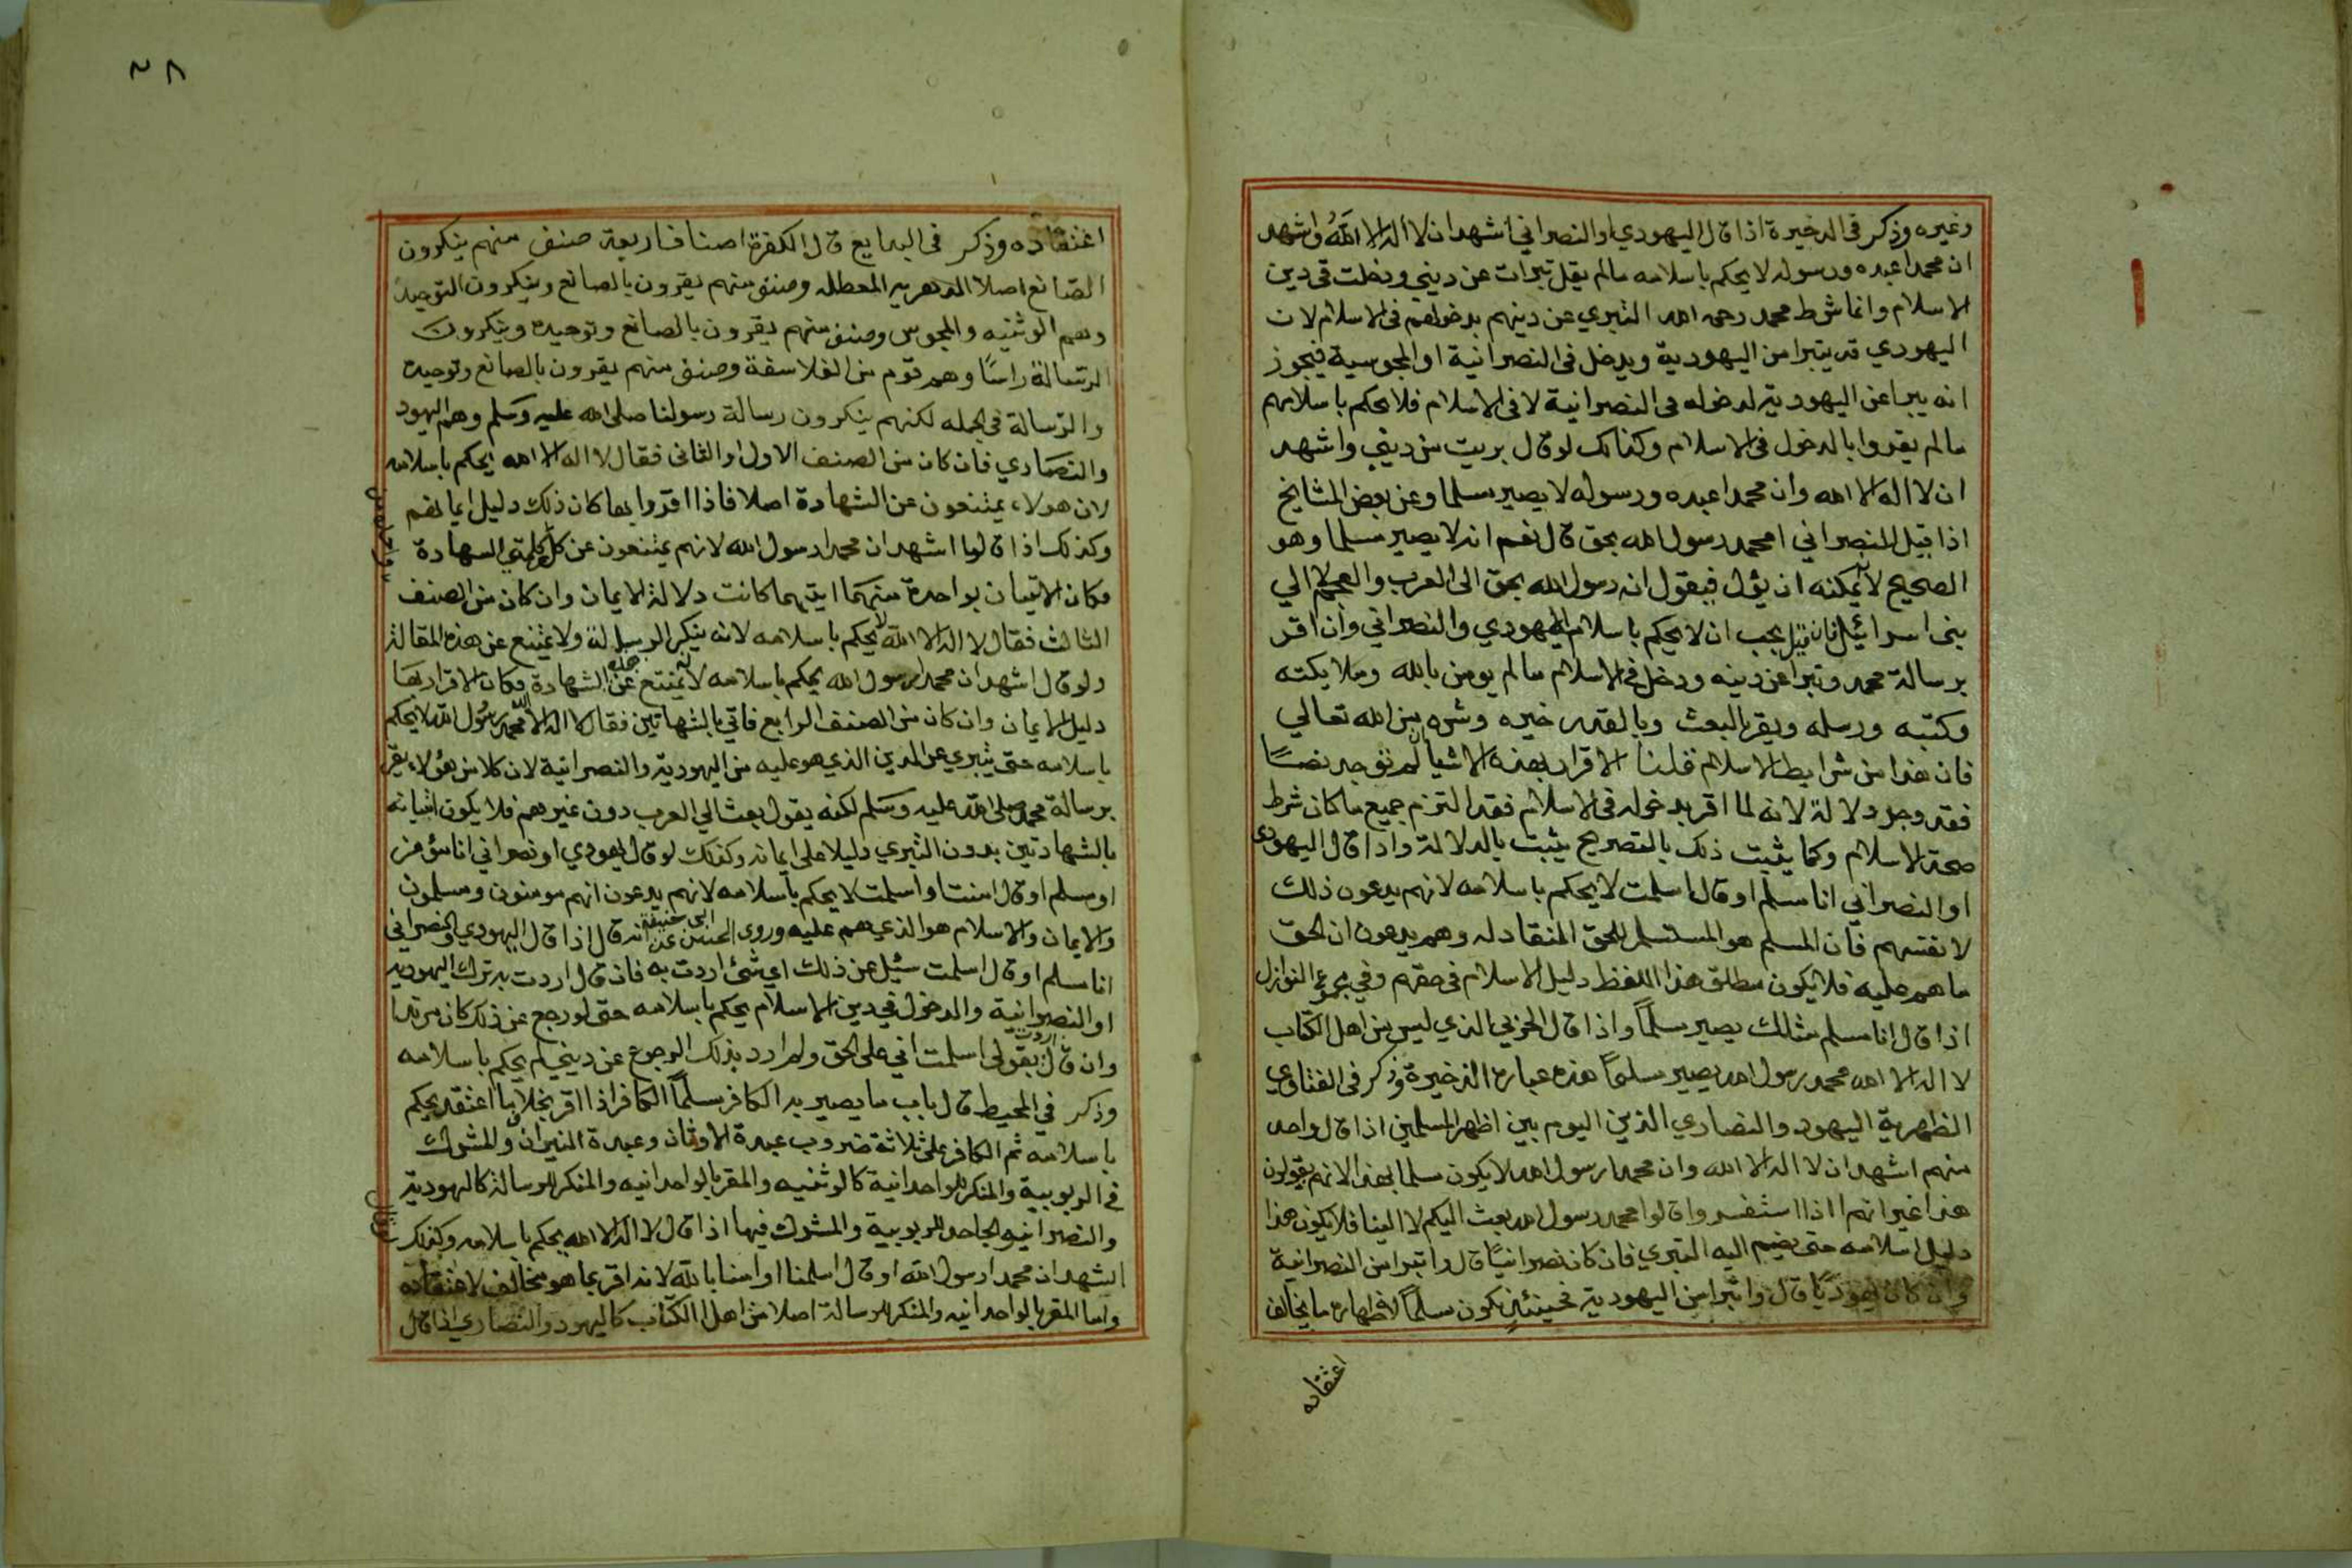 وغيره وذكر في الدخيرة اذا قال اليهودي او النصراني اشهد ان لا اله الا الله واشهد
ان محمدا عبده ورسوله لا يحكم باسلامه مالم يقل تبرات عن ديني ودخلت في دين
الاسلام وانما شرط محمد رحمه الله التبري عن دينهم بدخولهم في الاسلام لان
اليهودي قد يتبرا من اليهودية ويدخل في النصرانية او المجوسية فيجوز
انه يبرا عن اليهودية لدخوله في النصرانية لا في الاسلام فلا يحكم باسلامهم
مالم يقروا بالدخول في الاسلام وكذلك لو قال بريت من ديني واشهد
ان لا اله الا الله وان محمدا عبده ورسوله لا يصير مسلما وعن بعض المشايخ
اذا قيل للنصراني امحمد رسول الله بحق قال نعم انه لا يصير مسلما وهو
الصحيح لانه يمكنه ان يؤل فيقول انه رسول الله بحق الى العرب والعجم لا الي
بني اسرائيل فان قيل يجب ان لا يحكم باسلام اليهودي والنصراني وان اقر
برسالة محمد وتبرا عن دينه ودخل في الاسلام مالم يومن بالله وملايكته
وكتبه ورسله ويقر بالبعث وبالقدر خيره وشره من الله تعالي
فان هذا من شرايط الاسلام قلنا الاقرار بهذه الاشيا ان لم توجد نصًا
فقد وجد دلالة لانه لما اقر بدخوله في الاسلام فقد التزم جميع ما كان شرط
صحة الاسلام وكما يثبت ذلك بالتصريح يثبت بالدلالة واذا قال اليهودي
او النصراني انا مسلم او قال اسلمت لا يحكم باسلامه لانهم يدعون ذلك
لانفسهم فان المسلم هو المستسلم للحق المنقاد له وهم يدعون ان الحق
ما هم عليه فلا يكون مطلق هذا اللفظ دليل الاسلام في حقهم وفي مجموع النوازل
اذا قال انا مسلم مثلك يصير مسلمًا واذا قال الحربي الذي ليس من اهل الكتاب
لا اله الا الله محمد رسول الله يصير مسلمًا هذه عبارة الذخيرة وذكر في الفتاوي
الظهرية اليهود والنصاري الذين اليوم بين اظهر المسلمين اذا قال واحد
منهم اشهد ان لا اله الا الله وان محمدا رسول الله لا يكون مسلما بهذا لانهم يقولون
هذا غير انهم اذا استفسروا قالوا محمد رسول الله بعث اليكم لا الينا فلا يكون هذا
دليل اسلامه حتى يضم اليه التبري فان كان نصرانيًا قال واتبرا من النصرانية
وان كان يهوديًا قال واتبرا من اليهودية فحينئذٍ يكون مسلمًا لاظهاره ما يخالف
اعتقاده
٢٨
اعتقاده وذكر في البدايع قال الكفرة اصناف اربعة صنف منهم ينكرون
الصانع اصلا الدهرية المعطله وصنف منهم يقرون بالصانع وينكرون التوحيد
وهم الوثنيه والمجوس وصنف منهم يقرون بالصانع وتوحيده وينكرون
الرسالة راسًا وهم قوم من الفلاسفة وصنف منهم يقرون بالصانع وتوحيده
والرسالة في الجمله لكنهم ينكرون رسالة رسولنا صلى الله عليه وسلم وهم اليهود
والنصاري فان كان من الصنف الاول او الثاني فقال لا اله الا الله يحكم باسلامه
لان هولاء يمتنعون عن الشهادة اصلا فاذا اقروا بها كان ذلك دليل ايمانهم
وكذلك اذا قالوا اشهد ان محمدا رسول الله لانهم يمتنعون عن كل كلمتي الشهادة
فكان الاتيان بواحدة منهما ايتهما كانت دلالة الايمان وان كان من الصنف
الثالث فقال لا اله الا الله لا يحكم باسلامه لانه ينكر الرسالة ولا يمتنع عن هذه المقالة
ولو قال اشهد ان محمدا رسول الله يحكم باسلامه لانه يمتنع عن هذه الشهادة فكان الاقرار بها
دليل الايمان وان كان من الصنف الرابع فاتي بالشهاتين فقال لا اله الا الله محمد رسول الله لا يحكم
باسلامه حتى يتبري عن الدين الذي هو عليه من اليهودية والنصرانية لان كلا من هؤلاء يقر
برسالة محمد صلى الله عليه وسلم لكنه يقول بعث الي العرب دون غيرهم فلا يكون اتيانه
بالشهادتين بدون التبري دليلا على ايمانه وكذلك لو قال يهودي او نصراني انا مؤمن
او مسلم او قال امنت او اسلمت لا يحكم باسلامه لانهم يدعون انهم مومنون ومسلمون
والايمان والاسلام هو الذي هم عليه وروي الحسن عن ابي حنيفة انه قال اذا قال اليهودي او النصراني
انا مسلم او قال اسلمت سئل عن ذلك اي شئ اردت به فان قال اردت به ترك اليهودية
او النصرانية والدخول في دين الاسلام يحكم باسلامه حتى لو رجع عن ذلك كان مرتدا
وان قال اردت بقولي اسلمت اني على الحق ولم ارد بذلك الرجوع عن ديني لم يحكم باسلامه
وذكر في المحيط قال باب ما يصير به الكافر مسلمًا الكافر اذا اقر بخلاف ما اعتقد يحكم
باسلامه ثم الكافر على ثلاثة ضروب عبدة الاوثان وعبدة النيران والمشرك
في الربوبية والمنكر للواحدانية كالوثنيه والمقر بالواحدانيه والمنكر للرسالة كاليهودية
والنصرانيه الجاحد للربوبية والمشرك فيها اذا قال لا اله الا الله يحكم باسلامه وكذلك
اشهد ان محمدا رسول الله او قال اسلمنا او امنا بالله لانه اقر بما هو مخالف لاعتقاده
واما المقر بالواحدانيه والمنكر للرسالة اصلا من اهل الكتاب كاليهود والنصاري اذا قال